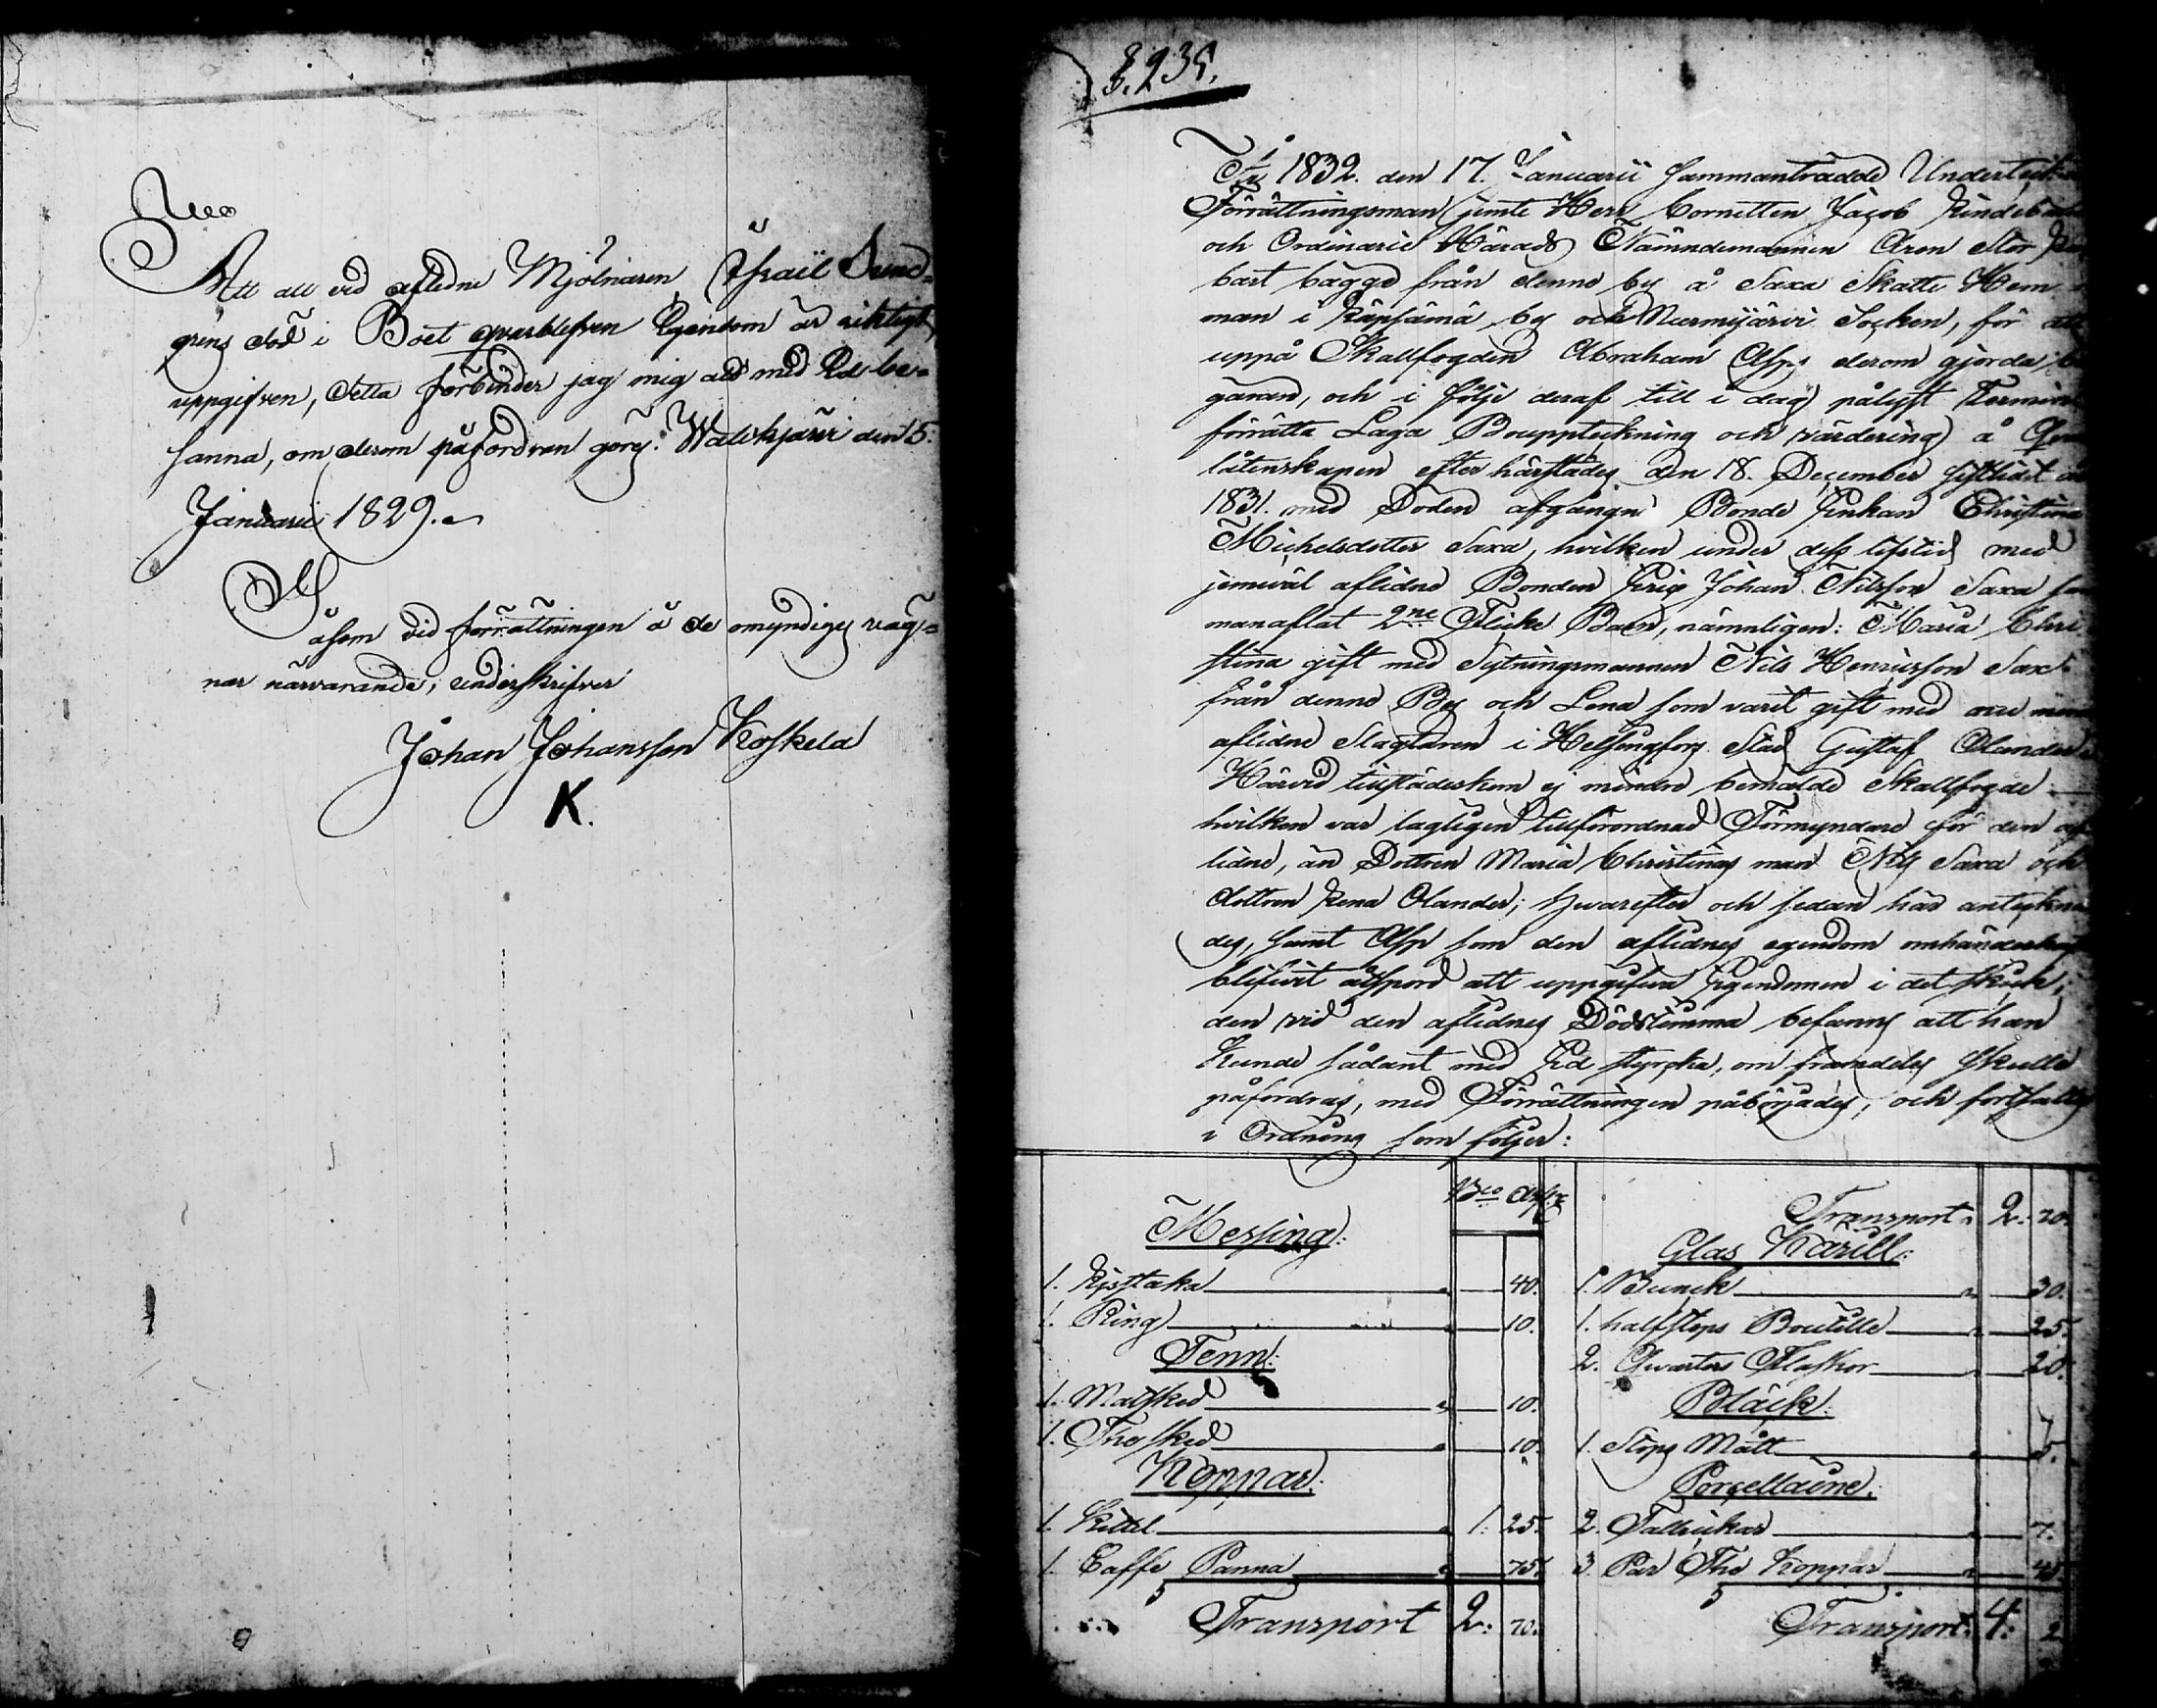 Att all vid afledne Mjölnaren Israël Sund-
grens död i Boet qvarblefven Egendom är riktigt
uppgifven, detta förbinder jag mig att med Ed be-
sanna, om derom påfordran görs. Walkjärvi den 5.
Januarii 1829.
Såsom vid förrättningen å de omyndiges väg-
nar närvarande, underskrifver
Johan Johansson Koskela
K.
§. 235.
År 1832. den 17. Januarii sammanträdde Underteckn
Förrättningsman jemte Herr Cornetten Jacob Lindeb
och Ordinarie Härads Nämndemannen Aron Stor
bart bägge från denne by å Saxa Skatte Hem
man i Räpsämä by och Nurmijärvi Socken, för att
uppå Skallfogden Abraham Asps derom gjorda be
gäran, och i följe deraf till i dag pålyst Termin
förrätta Laga Bouppteckning och värdering å Qvar
låtenskapen efter härstädes den 18. December sistledt år
1831. med Döden afgångne Bonde Enkan Christina
Michelsdotter Saxa, hvilken under dess lifstid med
jemväl aflidne Bonden Eric Johan Nilsson Saxa sam
manaflat 2ne Flicke Barn, nämnligen: Maria Chri
stina gift med Sytningsmannen Nils Henricsson Saxa
från denne By och Lena som varit gift med
aflidne Slagtaren i Helsingfors Stad Gustaf Olander
Härvid tillstädeskom ej mindre bemälde Skallfogde
hvilken var lagligen tillförordnad Förmyndare för den af
lidne, än Dottren Maria Christinas man Nils Saxa och
dottren Lena Olander; hvarefter och sedan här anteckna
des, samt Asp som den aflidnes egendom omhänderhaft
blifvit åtspord att uppgifva Egendomen i det skick,
den vid den aflidnes Dödstimma befanns att han
kunde sådant med Ed styrcka, om framdeles skulle
påfordras, med Förrättningen påbörjades, och fortsattes
i Ordning som följer:
Bco Assig
Messing:
1. Ljusstaka 40.
1. Ring 10.
Tenn:
1. Matsked 10.
1. Thesked 10.
Koppar:
1. Kittel 1: 25.
1. Caffe Panna 75.
Transport 2: 70.
Transport 2: 70.
Glas Kärill:
1. Bunck 30.
1. halfstops Boutille 25.
2. Qvarters Flaskor 20.
Bläck:
1. Stops Mått 5.
Porcellaine:
2. Tallrickar 7.
3. Par The Koppar 45.
Transport 4: 2